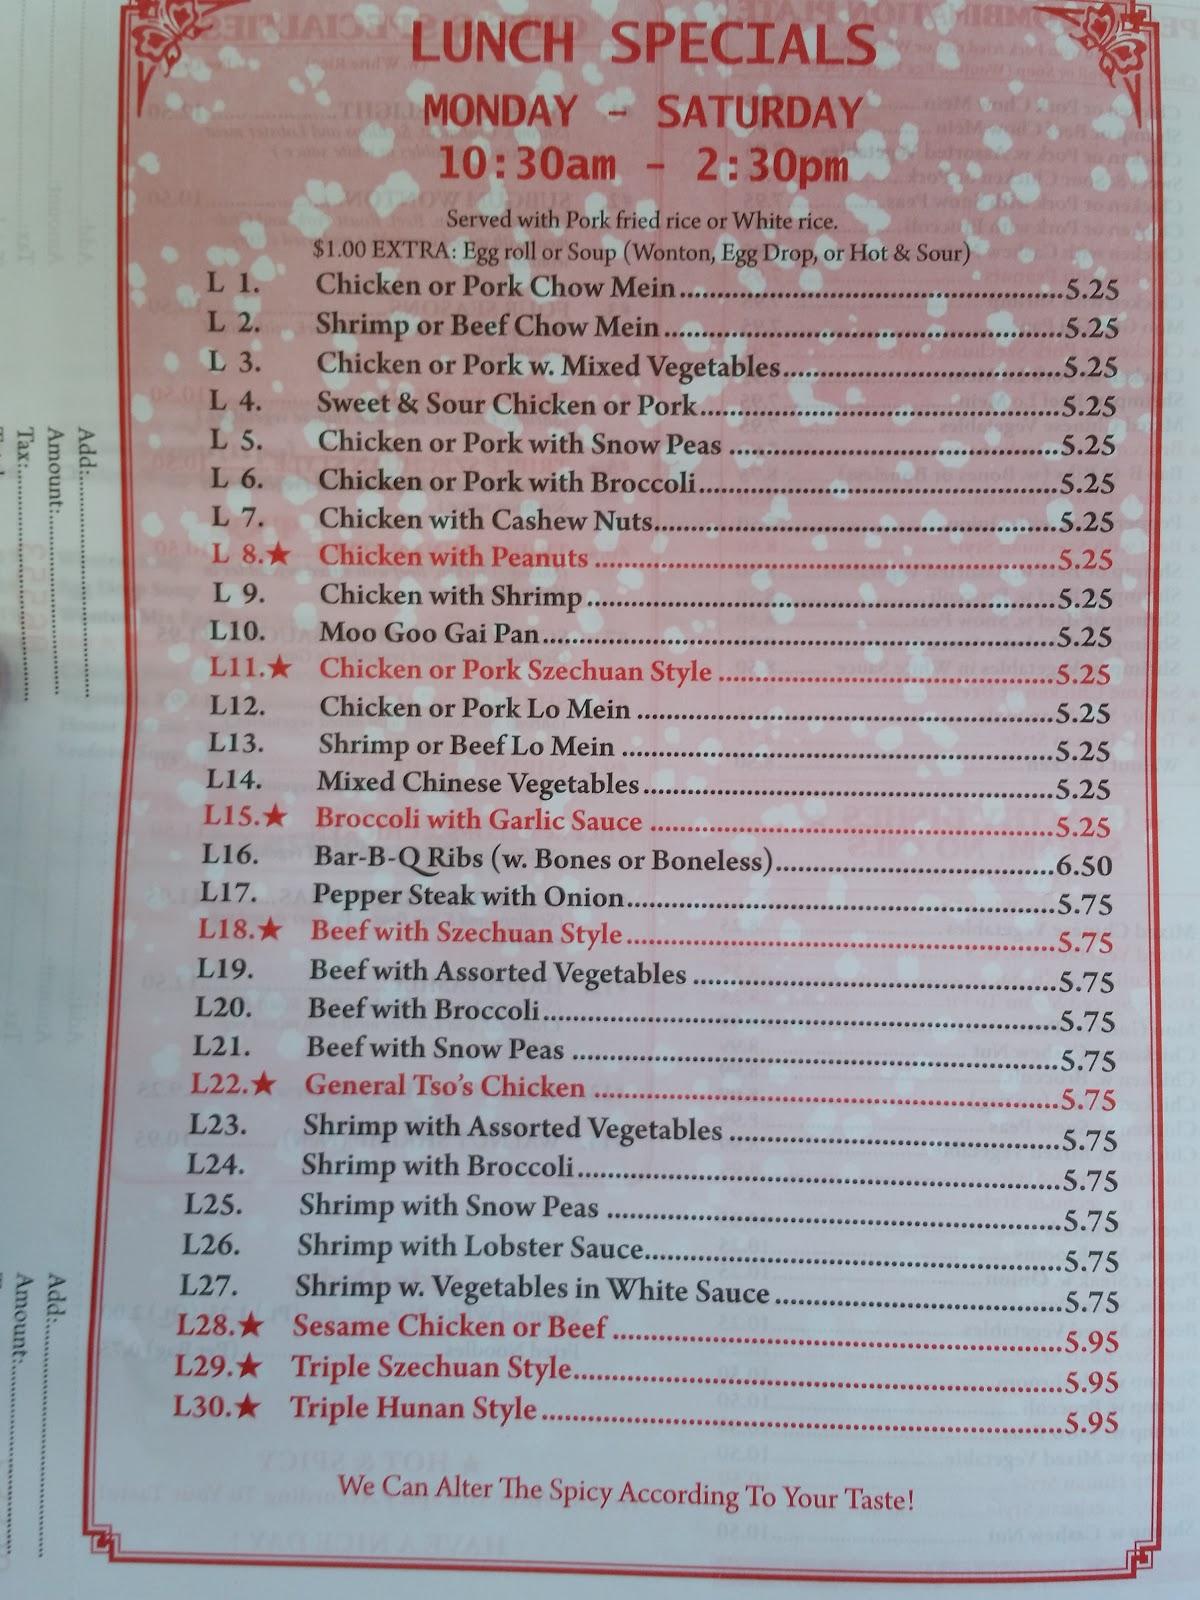 LUNCH SPECIALS
MONDAY - SATURDAY
10:30am - 2:30pm
Served with Pork fried rice or White rice.
$1.00 EXTRA: Egg roll or Soup (Wonton, Egg Drop, or Hot & Sour)
L 1. Chicken or Pork Chow Mein 5.25
L 2. Shrimp or Beef Chow Mein 5.25
L 3. Chicken or Pork w. Mixed Vegetables 5.25
L 4. Sweet & Sour Chicken or Pork 5.25
L 5. Chicken or Pork with Snow Peas 5.25
L 6. Chicken or Pork with Broccoli 5.25
L 7. Chicken with Cashew Nuts 5.25
L 8.★ Chicken with Peanuts 5.25
L 9. Chicken with Shrimp 5.25
L10. Moo Goo Gai Pan 5.25
L11.★ Chicken or Pork Szechuan Style 5.25
L12. Chicken or Pork Lo Mein 5.25
L13. Shrimp or Beef Lo Mein 5.25
L14. Mixed Chinese Vegetables 5.25
L15.★ Broccoli with Garlic Sauce 5.25
L16. Bar-B-Q Ribs (w. Bones or Boneless) 6.50
L17. Pepper Steak with Onion 5.75
L18.★ Beef with Szechuan Style 5.75
L19. Beef with Assorted Vegetables 5.75
L20. Beef with Broccoli 5.75
L21. Beef with Snow Peas 5.75
L22.★ General Tso's Chicken 5.75
L23. Shrimp with Assorted Vegetables 5.75
L24. Shrimp with Broccoli 5.75
L25. Shrimp with Snow Peas 5.75
L26. Shrimp with Lobster Sauce 5.75
L27. Shrimp w. Vegetables in White Sauce 5.75
L28.★ Sesame Chicken or Beef 5.95
L29.★ Triple Szechuan Style 5.95
L30.★ Triple Hunan Style 5.95
We Can Alter The Spicy According To Your Taste!
Add:
Amount:
Tax:
Add:
Amount: